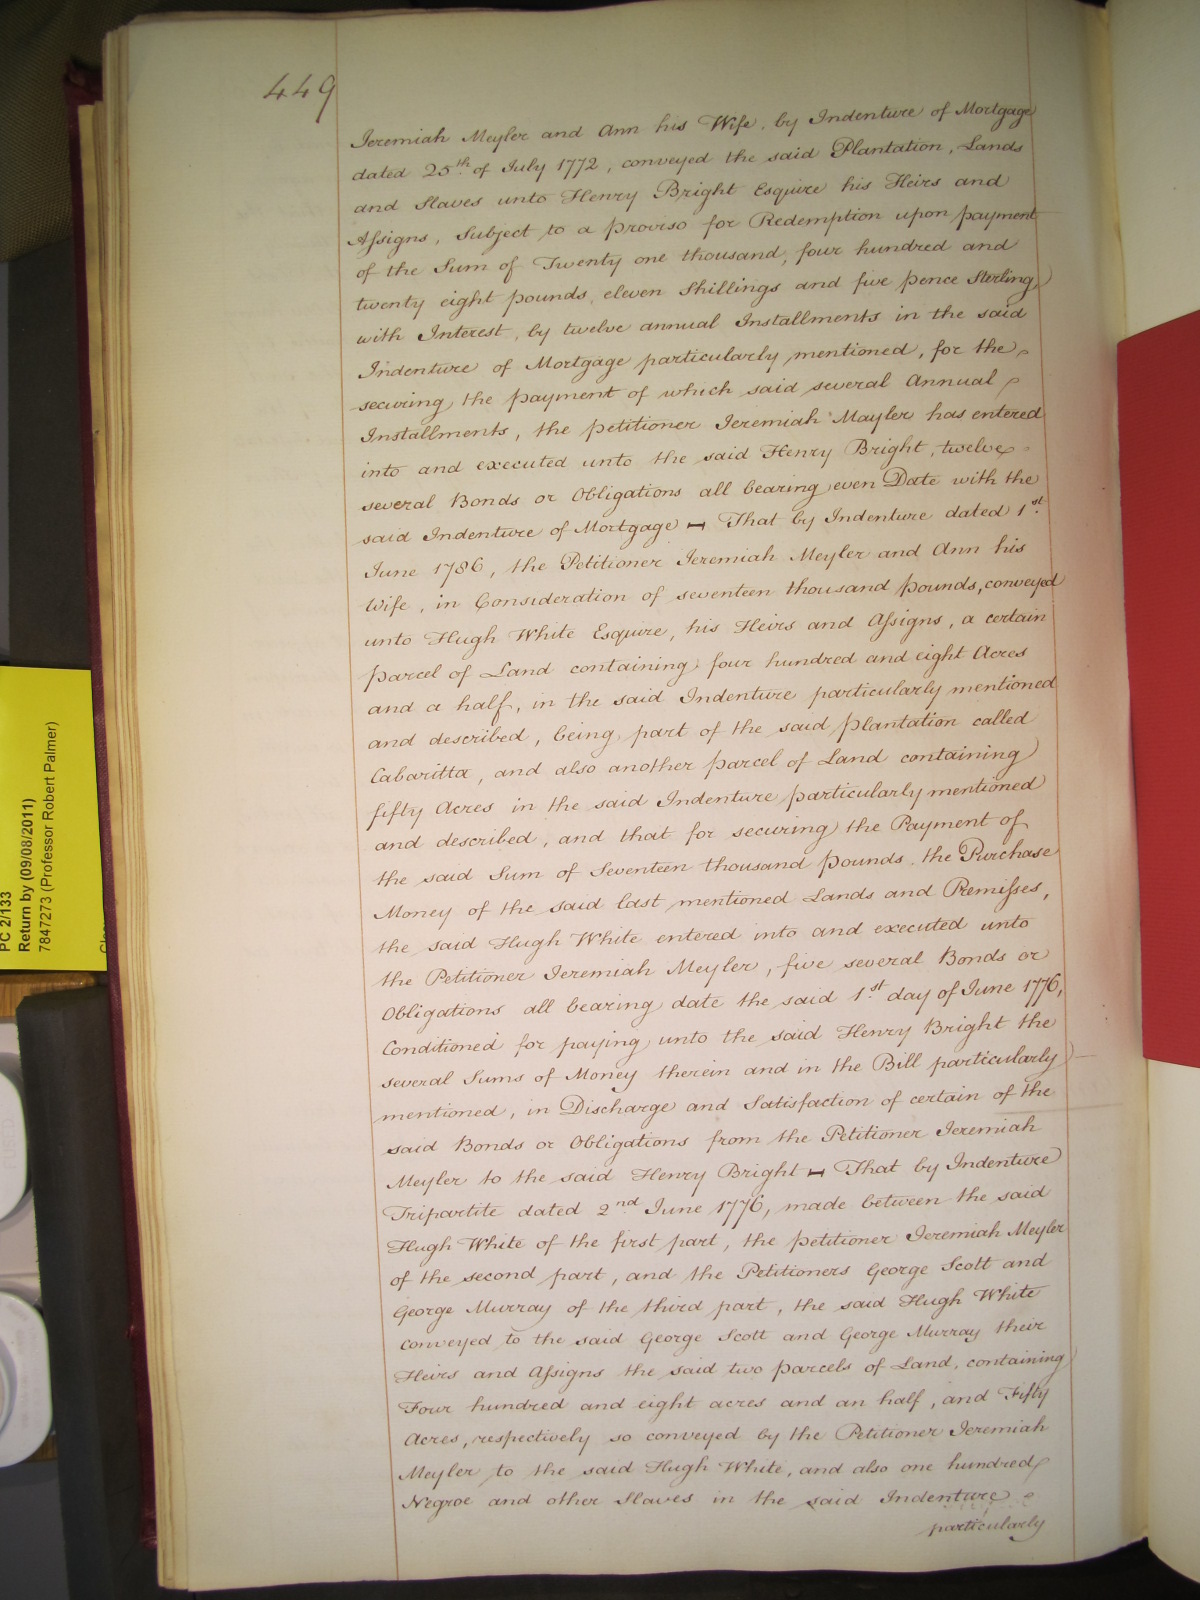 449
Jeremiah Meyler and Ann his Wife, by Indenture of Mortgage
dated 25th of July 1772, conveyed the said Plantation, Lands
and Slaves unto Henry Bright Esquire his Heirs and
Assigns, Subject to a proviso for Redemption upon payment
of the Sum of Twenty one thousand, four hundred and
twenty eight pounds, eleven Shillings and five pence Sterling,
with Interest, by twelve annual Installments in the said
Indenture of Mortgage particularly mentioned, for the
securing the payment of which said several Annual
Installments, the petitioner Jeremiah Mayler has entered
into and executed unto the said Henry Bright, twelve
several Bonds or Obligations all bearing even Date with the
said Indenture of Mortgage — That by Indenture dated 1st.
June 1786, the Petitioner Jeremiah Meyler and Ann his
Wife, in Consideration of seventeen thousand pounds, conveyed
unto Hugh White Esquire, his Heirs and Assigns, a certain
parcel of Land containing four hundred and eight Acres
and a half, in the said Indenture particularly mentioned
and described, being part of the said plantation called
Cabaritta, and also another parcel of Land containing
fifty Acres in the said Indenture particularly mentioned
and described, and that for securing the Payment of
the said Sum of Seventeen thousand pounds, the Purchase
Money of the said last mentioned Lands and Premisses,
the said Hugh White entered into and executed unto
the Petitioner Jeremiah Meyler, five several Bonds or
Obligations all bearing date the said 1.st day of June 1776,
Conditioned for paying unto the said Henry Bright the
several Sums of Money therein and in the Bill particularly
mentioned, in Discharge and Satisfaction of certain of the
said Bonds or Obligations from the Petitioner Jeremiah
Meyler to the said Henry Bright — That by Indenture
Tripartite dated 2nd. June 1776, made between the said
Hugh White of the first part, the petitioner Jeremiah Meyler
of the second part, and the Petitioners George Scott and
George Murray of the third part, the said Hugh White
conveyed to the said George Scott and George Murray their
Heirs and Assigns the said two parcels of Land, containing
Four hundred and eight acres and an half, and Fifty
Acres, respectively so conveyed by the Petitioner Jeremiah
Meyler to the said Hugh White, and also one hundred
Negroe and other Slaves in the said Indenture
particularly
PC 2/133
Return by (09/08/2011)
7847273 (Professor Robert Palmer)